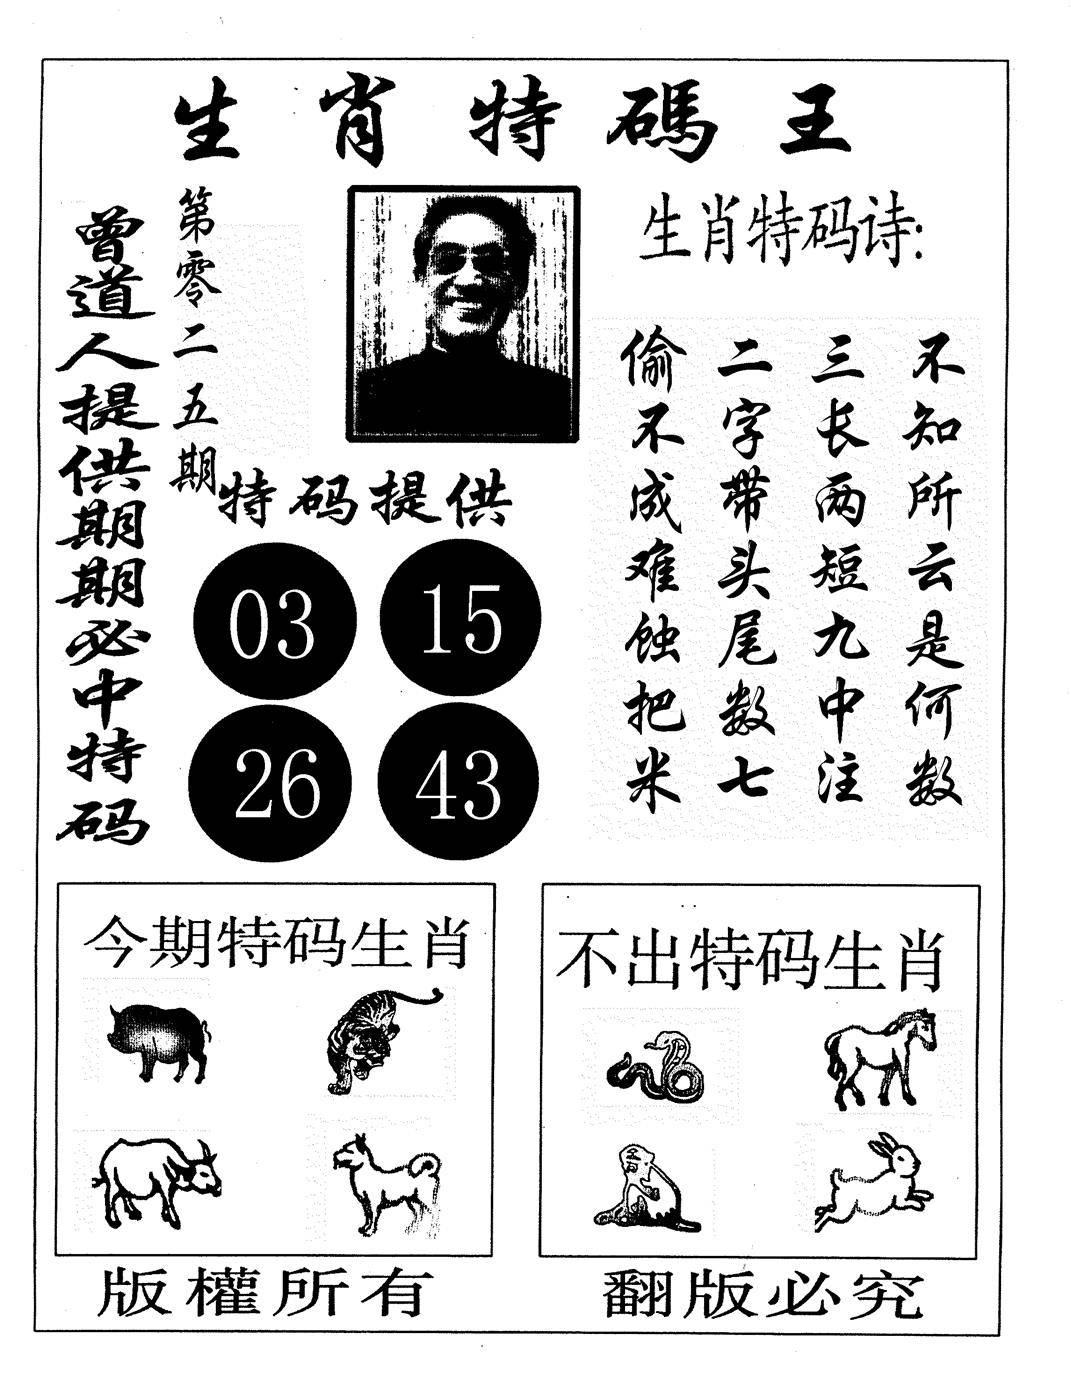 生肖特碼王
曾道人提供期期必中特码
第零二五期
特码提供
03 15
26 43
生肖特码诗:
偷不成难蚀把米
二字带头尾数七
三长两短九中注
不知所云是何数
今期特码生肖
不出特码生肖
版權所有
翻版必究